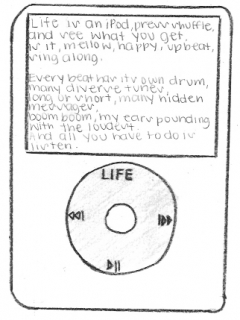 Life is an iPod, press shuffle,
and see what you get.
Is it, mellow, happy, upbeat,
sing along.
Every beat has its own drum,
many diverse tunes,
long or short, many hidden
messages,
boom boom, my ears pounding
with the loudest.
And all you have to do is
listen.
LIFE